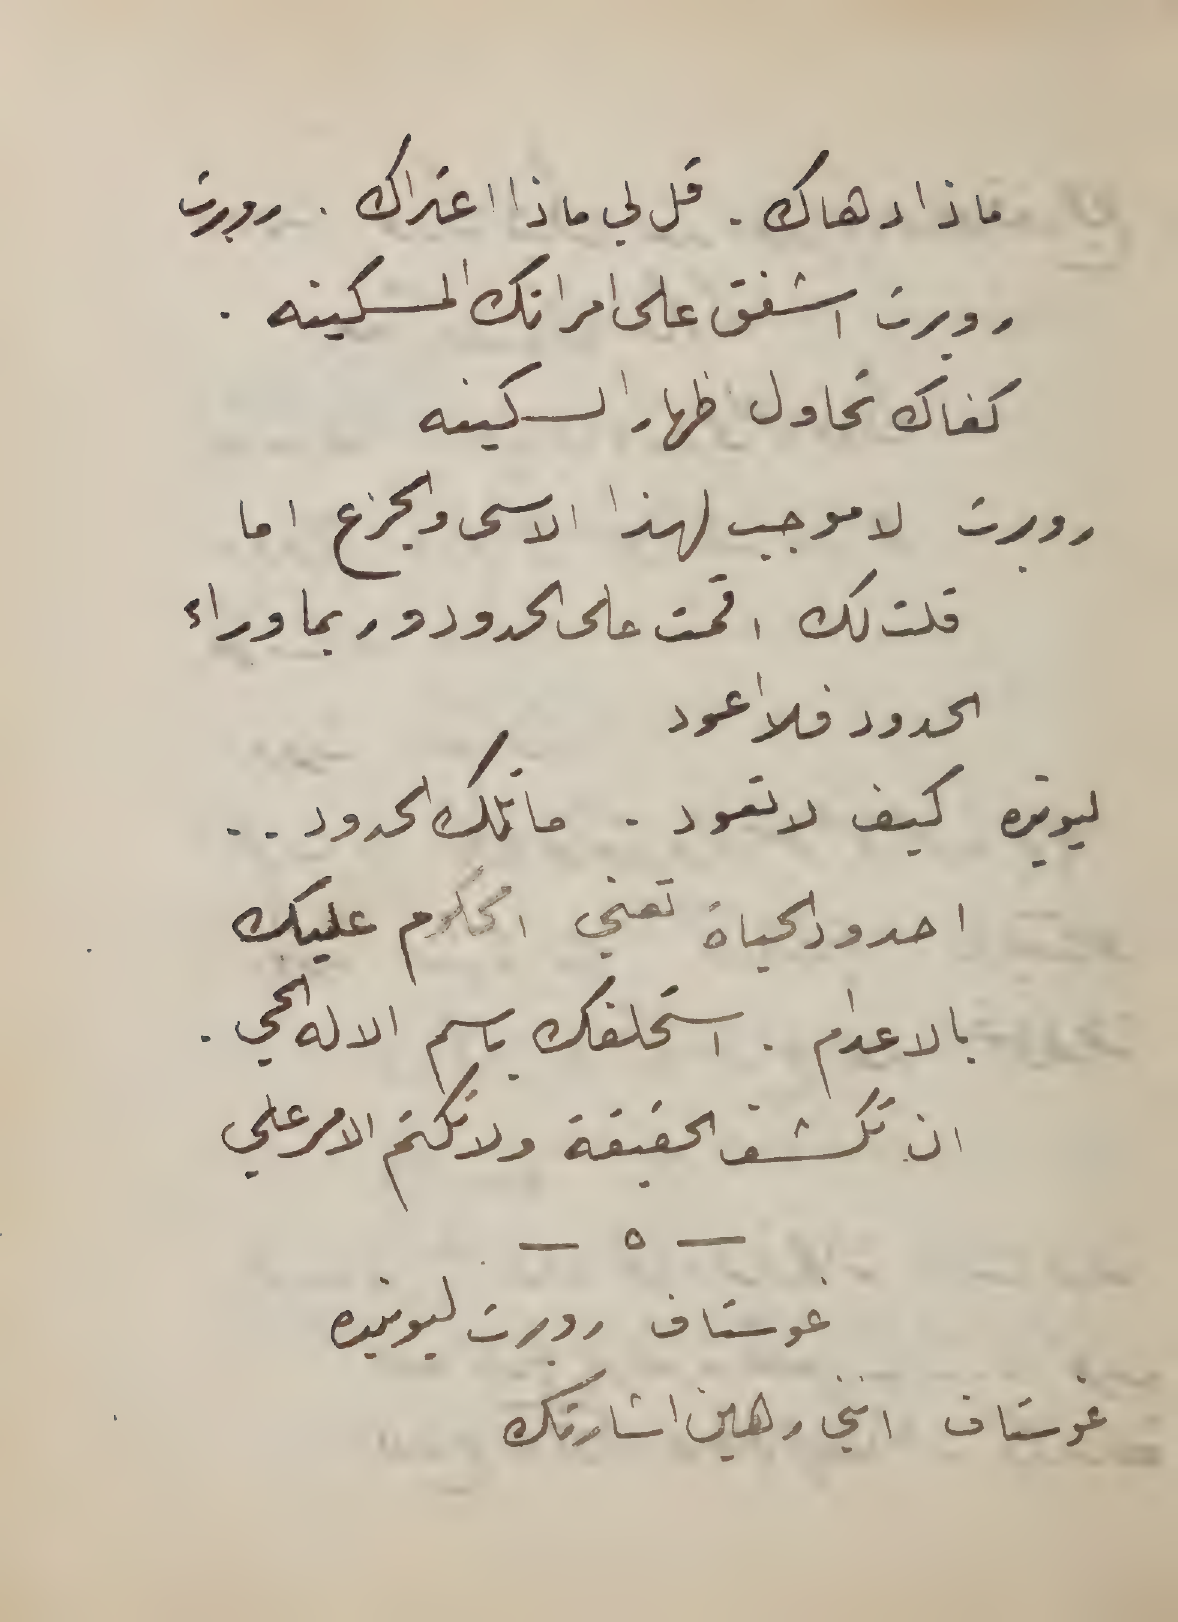 ماذا دهاك . قل لي ماذا اعتراك . روبرت
روبرت اشفق على امراتك المسكينه .
كفاك تحاول اظهار السكينه
روبرت لا موجب لهذا الاسى والجزع اما
قلت لك اقمت على الحدود وربما وراء
الحدود فلا اعود
ليونيره كيف لا تعود . ما تلك الحدود . .
احدود الحياة تعني امحكوم عليك
بالاعدام . استحلفك باسم الاله الحي .
ان تكشف الحقيقة ولا تكتم الامر علي
— ٥ —
غوستاف روبرت ليونيره
غوستاف انني رهين اشارتك